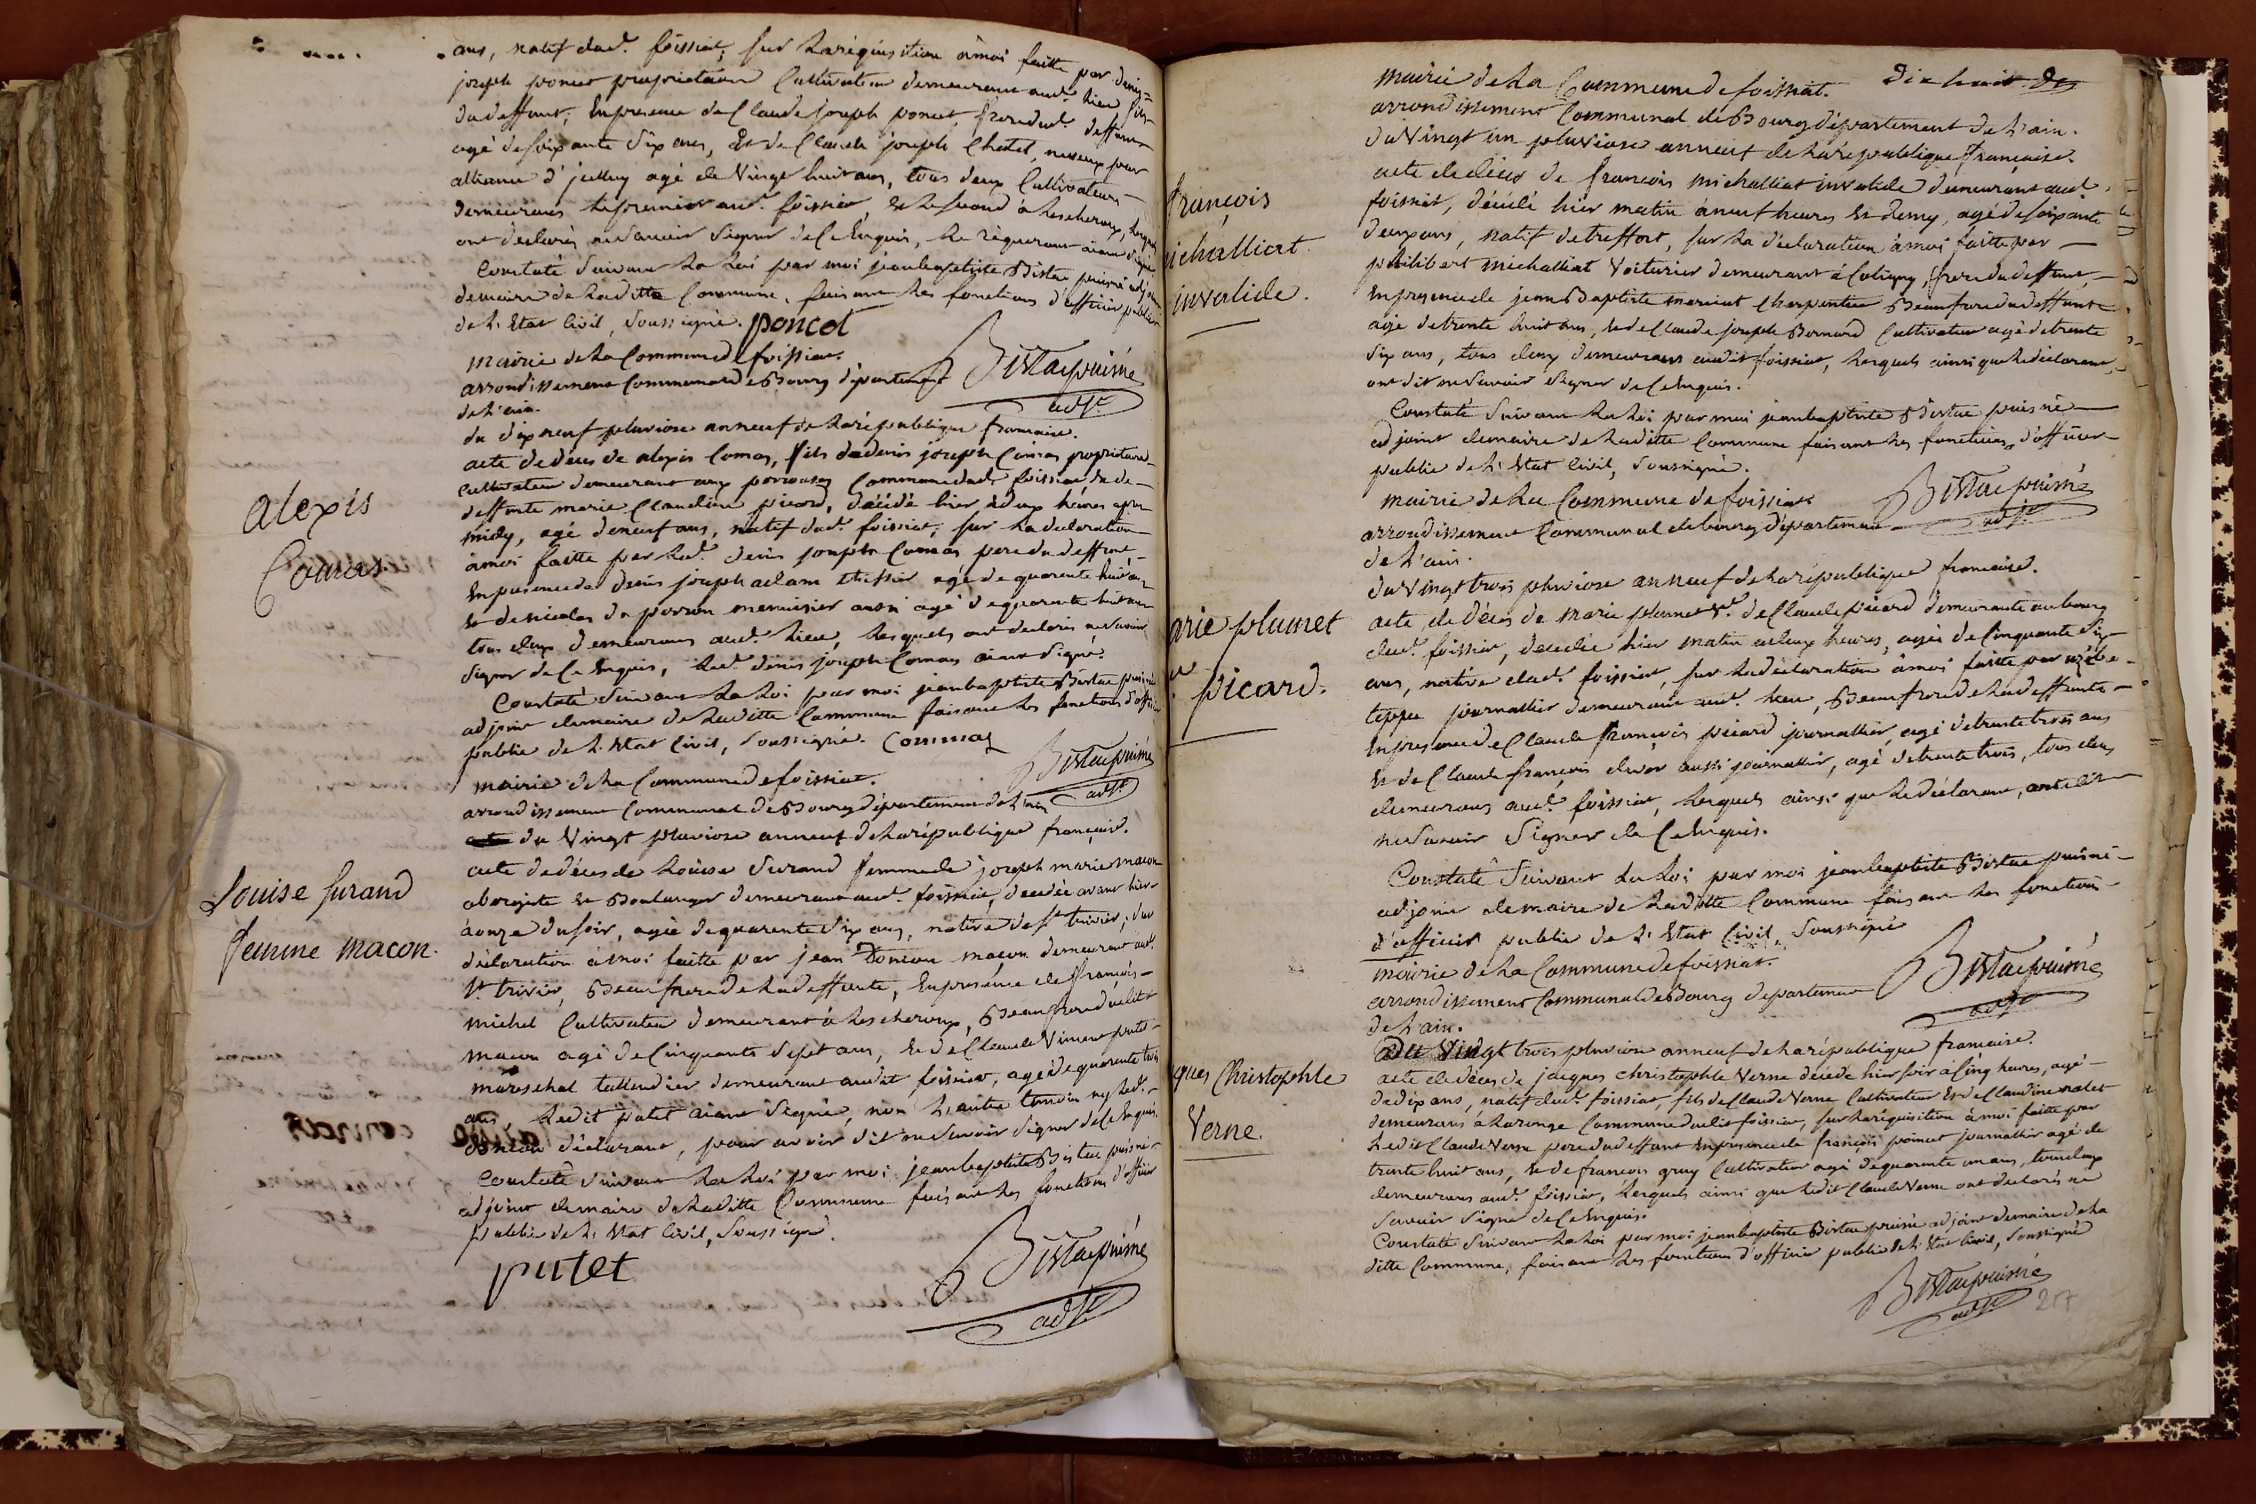 ans, natif dud.t foissiat, sur la réquisition à moi faitte par denis=
joseph poncet propriétaire Cultivateur demeurant aud.t lieu fils
du deffunt, En presence de Claude joseph poncet, frere dud.t deffunt
agé de soixante six ans, Et de Claude joseph Chatel, neveux par
alliance d'icelluy agé de Vingt huit ans, tous deux Cultivateurs
demeurans le premier aud.t foissiat, et le second à lescheroux, lesquels
ont declarés ne savoir signer de Ce Enquis, le requerant aiant signé
Constaté Suivant la Loi par moi jean baptiste Bistac puisné adjoint
demaire de laditte Commune, faisant les fonctions d'officier public
de l'Etat Civil, soussigné. poncet
Bistac puiné
adj.t
mairie de la Commune de foissiat.
arrondissement Communal de Bourg département
de l'ain.
du dix neuf pluviose an neuf de la république francaise.
alexis
Comas
acte de deces de alexis Comas, fils de denis joseph Comas propriétaire
Cultivateur demeurant aux Commune dud.t foissiat et de
deffunte marie Claudine picard, décédé hier à deux heures apres
midy, agé de neuf ans, natif dud.t foissiat, sur la declaration
à moi faitte par led.t denis joseph Comas pere du deffunt
En presence de denis joseph adam tissier agé de quarante huit ans
et de nicolas du perron menuisier aussi agé de quarante huit ans
tous deux demeurans aud.t lieu, lesquels ont declarés ne savoir
signer de Ce Enquis, led.t denis joseph Comas aiant signé.
Constaté Suivant la Loi par moi jean baptiste Bistac puisné
adjoint demaire de laditte Commune faisant les fonctions d'officier
public de l'Etat Civil, soussigné. Commas
Bistac puiné
adj.t
mairie de la Commune de foissiat.
arrondissement Communal de Bourg département de l'ain
du Vingt pluviose an neuf de la république française.
Louise surand
femme macon.
acte de déces de Louise Surand femme de joseph marie macon
aubergiste et Boulanger demeurant aud.t foissiat, decedée avant hier
à onze du soir, agée de quarante six ans, native de s.t trivier, sur
déclaration à moi faitte par jean Doncon macon demeurant aud.t
s.t trivier, Beaufrere de la deffunte, En presence de françois
michel Cultivateur demeurant à lescheroux, Beaufrere dudit
macon agé de Cinquante sept ans, et de Claude Vincent putet
mareschal taillandier demeurant audit foissiat, agé de quarante trois
ans ledit putet aiant signé, non l'autre temoin ny led.t
doncon déclarant, pour avoir dit ne savoir signer de Ce Enquis.
Constaté suivant la Loi par moi jean baptiste Bistac puisné
adjoint demaire de laditte Commune faisant les fonctions d'officier
public de l'Etat Civil, soussigné.
putet
Bistac puiné
adj.t
dix huit
mairie de la Commune de foissiat.
arrondissement Communal de Bourg département de l'ain.
du Vingt un pluviose an neuf de la république française.
françois
michalliat
invalide.
acte de déces de françois michalliat invalide demeurant aud.t
foissiat, décédé hier matin à neuf heures et demy, agé de soixante
deux ans, natif de treffort, sur la déclaration à moi faitte par
philibert michalliat Voiturier demeurant à Coligny, frere du deffunt,
En presence de jean Baptiste Charpentier Beaufrere du deffunt
agé de trente huit ans, et de Claude joseph Bernard Cultivateur agé de trente
six ans, tous deux demeurans audit foissiat, lesquels ainsi que le déclarant,
ont dit ne savoir signer de Ce Enquis.
Constaté suivant la Loi par moi jean baptiste Bistac puisné
adjoint demaire de laditte Commune faisant les fonctions d'officier
public de l'Etat Civil, soussigné.
Bistac puiné
adj.t
mairie de la Commune de foissiat
arrondissement Communal de bourg département
de l'ain.
du Vingt trois pluviose an neuf de la république francaise.
marie plumet
v.e picard.
acte de déces de marie plumet v.e de Claude picard demeurante au bourg
dud.t foissiat, decedée hier matin à deux heures, agée de Cinquante six
ans, native dud.t foissiat, sur la déclaration à moi faitte par
teppe journallier demeurant aud.t lieu, Beaufrere de la deffunte
En presence de Claude françois picard journallier, agé de trente trois ans
Et de Claude françois aussi journallier, agé de trente trois, tous deux
demeurans aud.t foissiat, lesquels ainsi que le déclarant, ont dit
ne savoir signer de Ce Enquis.
Constaté Suivant la Loi par moi jean baptiste Bistac puisné
adjoint demaire de laditte Commune faisant les fonctions
d'officier public de l'Etat Civil, soussigné
Bistac puiné
adj.t
mairie de la Commune de foissiat.
arrondissement Communal de Bourg departement
de l'ain.
du Vingt trois pluviose an neuf de la république francaise.
jacques Christophle
Verne.
acte de déces de jacques Christophle Verne décédé hier soir à Cinq heures, agé
de dix ans, natif dud.t foissiat, fils de Claude Verne Cultivateur Et de Claudine
demeurans à Commune dudit foissiat, sur la réquisition à moi faitte par
ledit Claude Verne pere du deffunt En presence de françois poncet journallier agé de
trente huit ans, et de françois Cultivateur agé de quarante un ans, tous deux
demeurans aud.t foissiat, lesquels ainsi que ledit Claude Verne ont declarés ne
savoir signer de Ce Enquis.
Constaté Suivant la Loi par moi jean baptiste Bistac puisné adjoint demaire de la
ditte Commune, faisant les fonctions d'officier public de l'Etat Civil, soussigné
Bistac puiné
adj.t
217